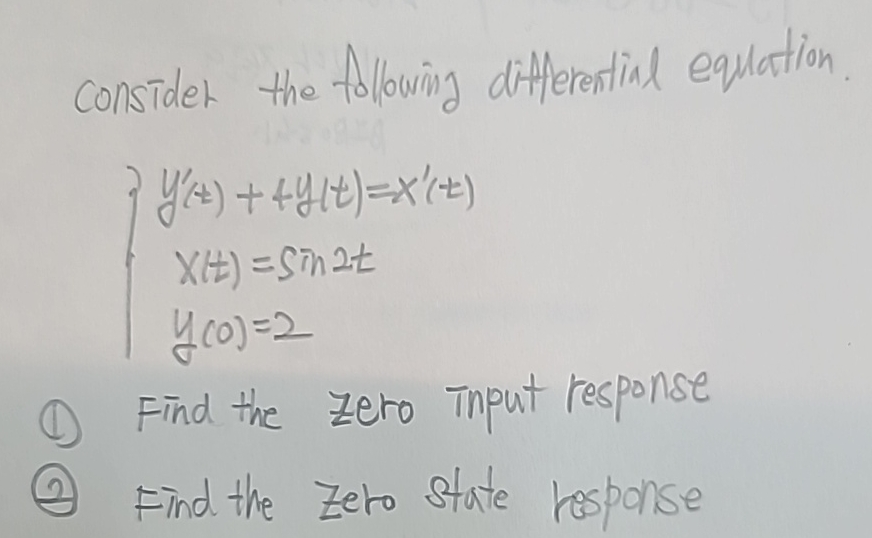 Consider the following differential equation.
y'(t) + 4y(t) = x'(t)
x(t) = sin2t
y(0) = 2
① Find the zero input response
② Find the zero state response